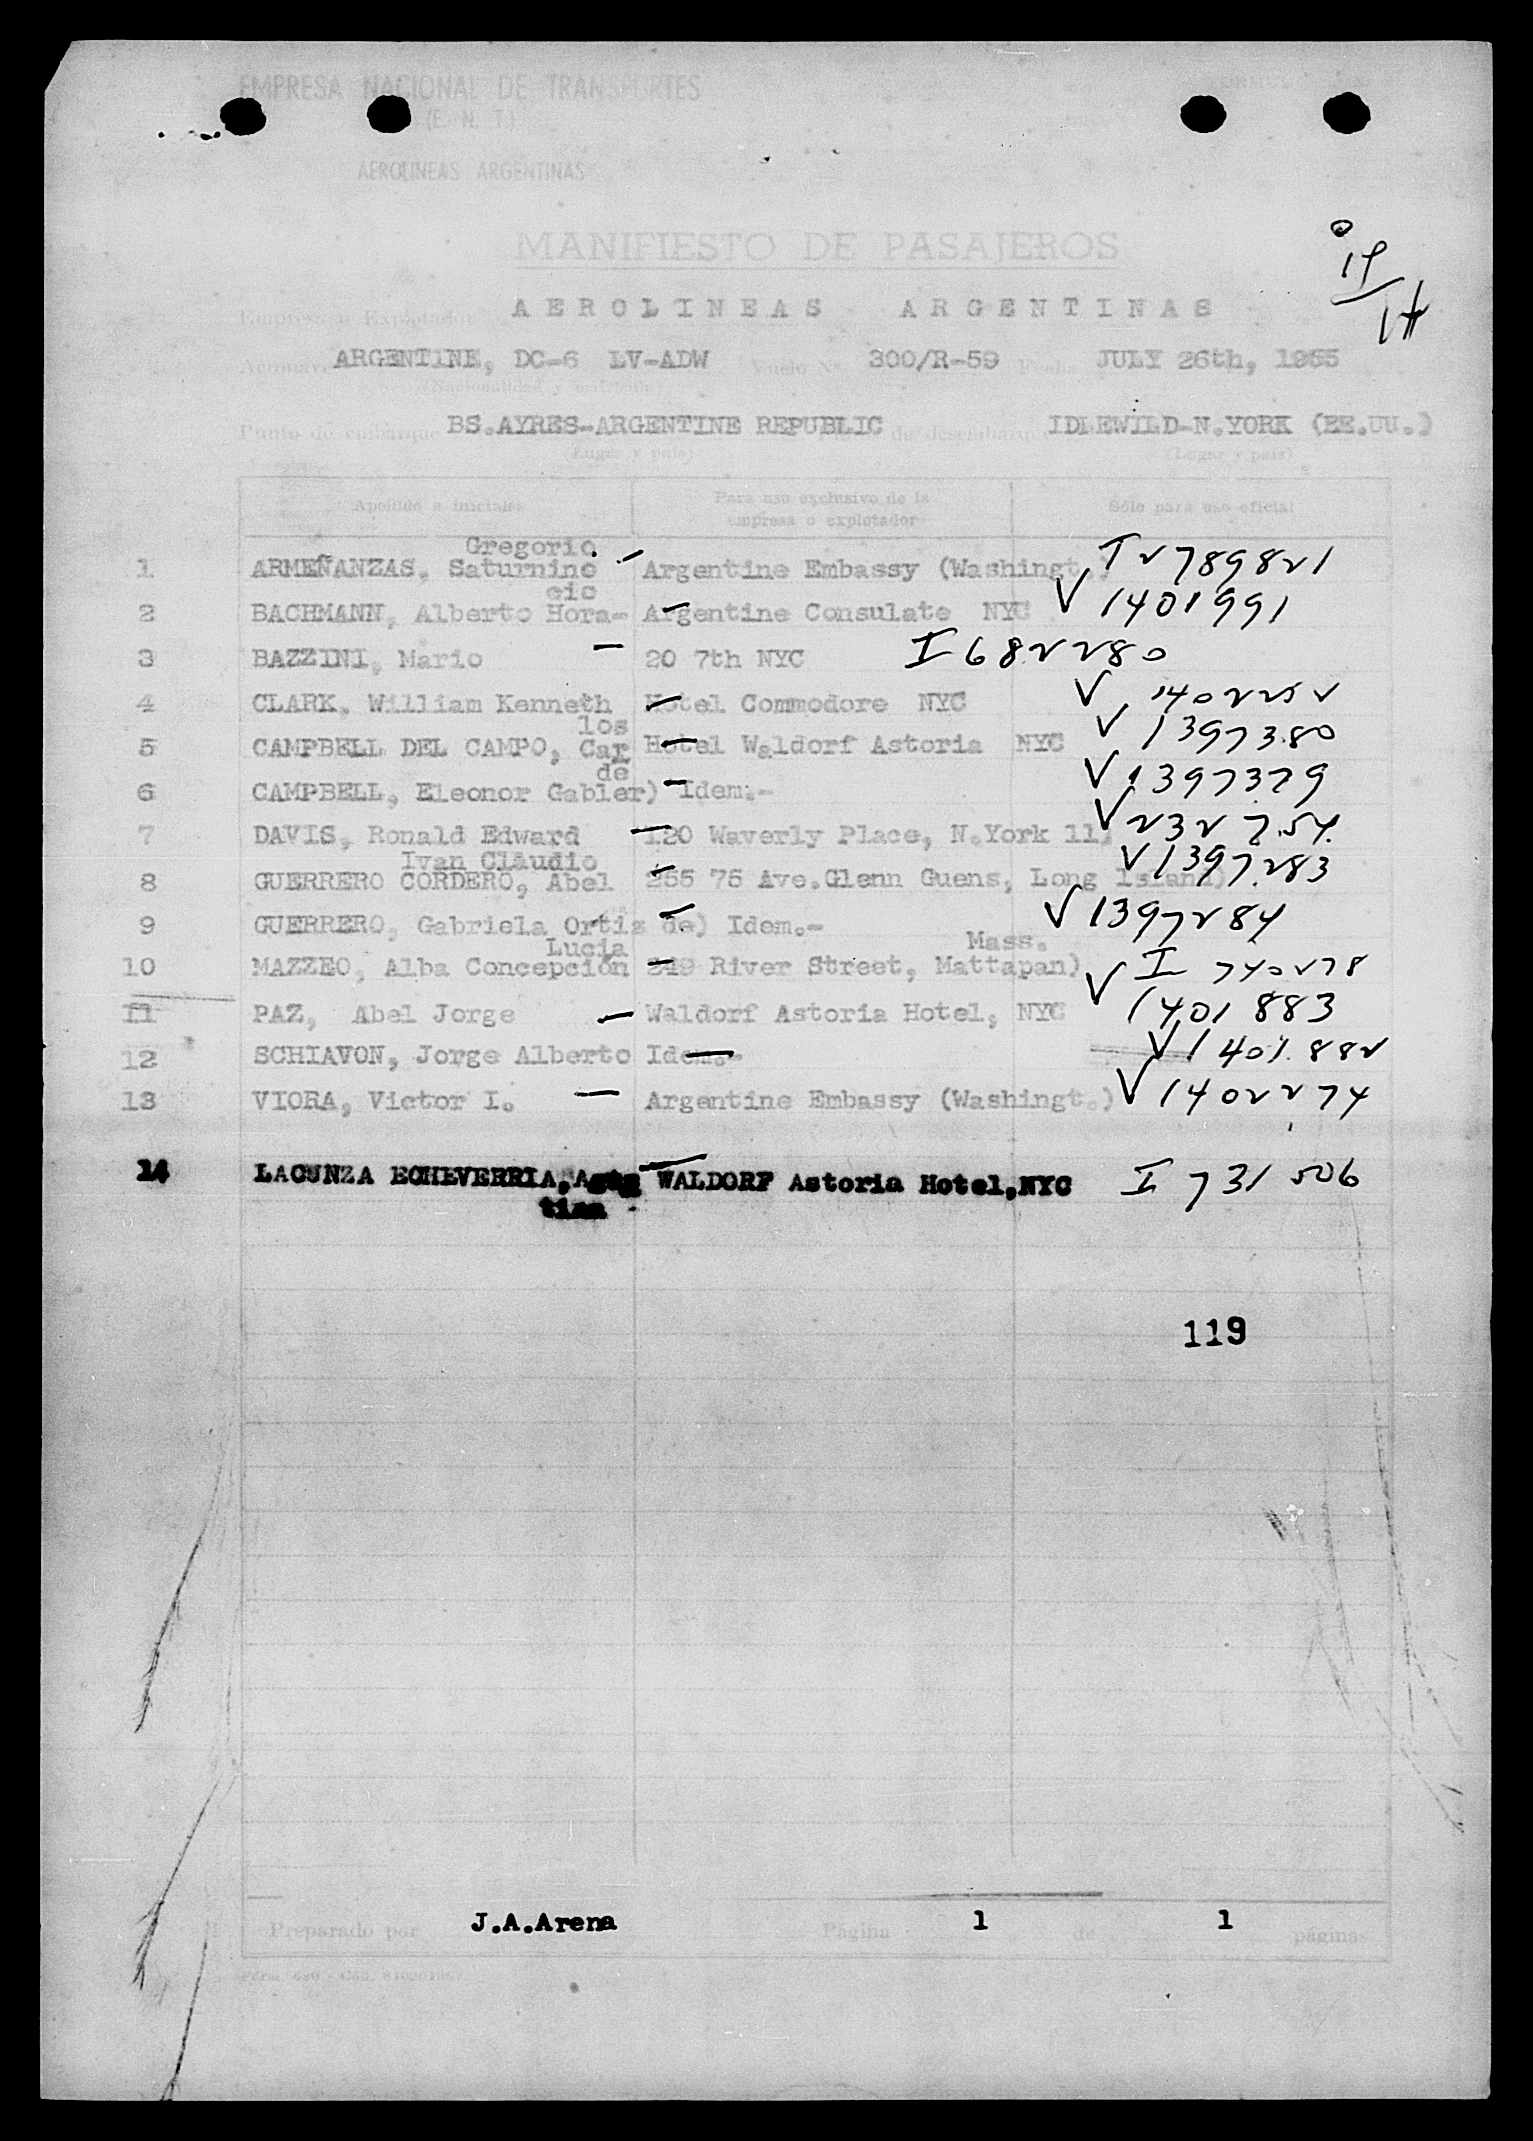 EMPRESA NACIONAL DE TRANSPORTES
(E. N. T.)
AEROLINEAS ARGENTINAS
MANIFIESTO DE PASAJEROS
AEROLINEAS ARGENTINAS
ARGENTINE, DC-6 LV-ADW Vuelo Nº 300/R-59 Fecha JULY 26th, 1955
(Nacionalidad y matrícula)
Punto de embarque BS.AYRES-ARGENTINE REPUBLIC de desembarque IDLEWILD-N.YORK (EE.UU.)
(Lugar y país) (Lugar y país)
Apellido e iniciales Para uso exclusivo de la empresa o explotador Sólo para uso oficial
Gregorio
1 ARMEÑANZAS, Saturnino Argentine Embassy (Washingt.) I 2789821
cio
2 BACHMANN, Alberto Hora- Argentine Consulate NYC V 1401991
3 BAZZINI, Mario 20 7th NYC I 682280
4 CLARK, William Kenneth Hotel Commodore NYC V 1402252
los
5 CAMPBELL DEL CAMPO, Car Hotel Waldorf Astoria NYC V 1397380
de
6 CAMPBELL, Eleonor Gabler) Idem.- V 1397379
7 DAVIS, Ronald Edward 120 Waverly Place, N.York 11, V 232754
Ivan Claudio
8 GUERRERO CORDERO, Abel 255 75 Ave.Glenn Guens, Long Island) V 1397283
9 GUERRERO, Gabriela Ortiz de) Idem.- V 1397284
Lucia Mass.
10 MAZZEO, Alba Concepción 249 River Street, Mattapan) I 740278
11 PAZ, Abel Jorge Waldorf Astoria Hotel, NYC V 1401883
12 SCHIAVON, Jorge Alberto Idem.- V 1401882
13 VIORA, Victor I. Argentine Embassy (Washingt.) V 1402274
14 LACUNZA ECHEVERRIA, WALDORF Astoria Hotel,NYC I 731506
119
Preparado por J.A.Arena Página 1 de 1 páginas